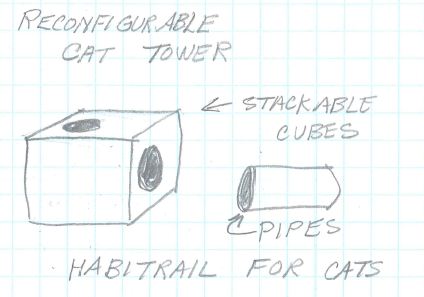 RECONFIGURABLE
CAT TOWER
STACKABLE
CUBES
PIPES
HABITRAIL FOR CATS